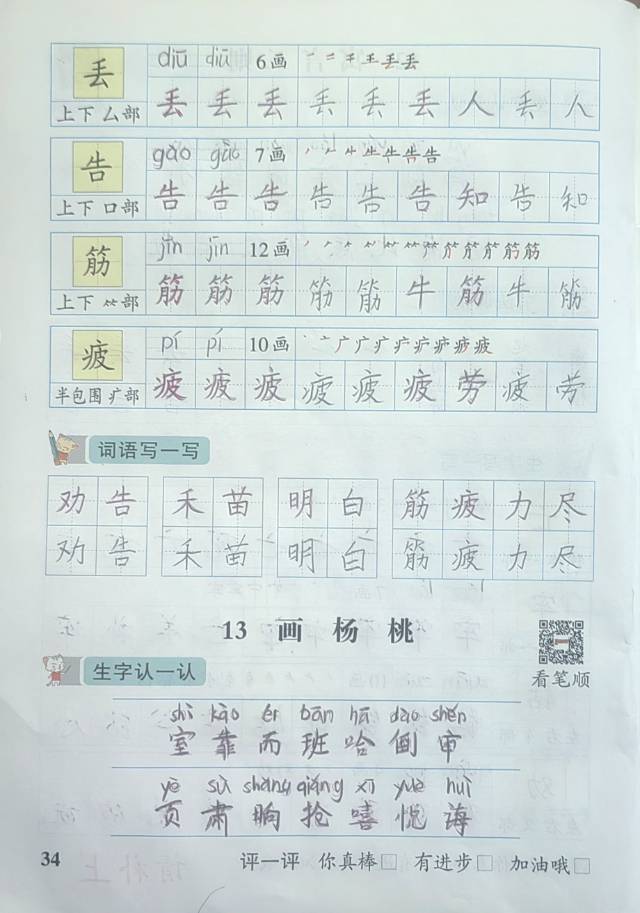 丢 diū diū 6画 一 二 千 王 丢 丢
上下 厶部 丢 丢 丢 丢 丢 丢 人 丢 人
告 gào gào 7画
上下 口部 告 告 告 告 告 告 知 告 知
筋 jīn jīn 12画
上下 ⺮部 筋 筋 筋 筋 筋 牛 筋 牛 筋
疲 pí pí 10画
半包围 疒部 疲 疲 疲 疲 疲 疲 劳 疲 劳
词语写一写
劝 告 禾 苗 明 白 筋 疲 力 尽
劝 告 禾 苗 明 白 筋 疲 力 尽
13 画 杨 桃
看笔顺
生字认一认
shì kào ér bān hā dào shěn
室 靠 而 班 哈 倒 审
yè sù shǎng qiǎng xī yuè huì
页 肃 晌 抢 嘻 悦 诲
34 评一评 你真棒 有进步 加油哦